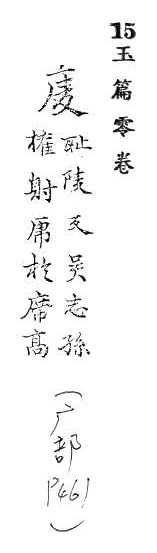 15玉篇零卷
庱
耻陵反吳志孫
權射虎於庱高
(广部 P461)